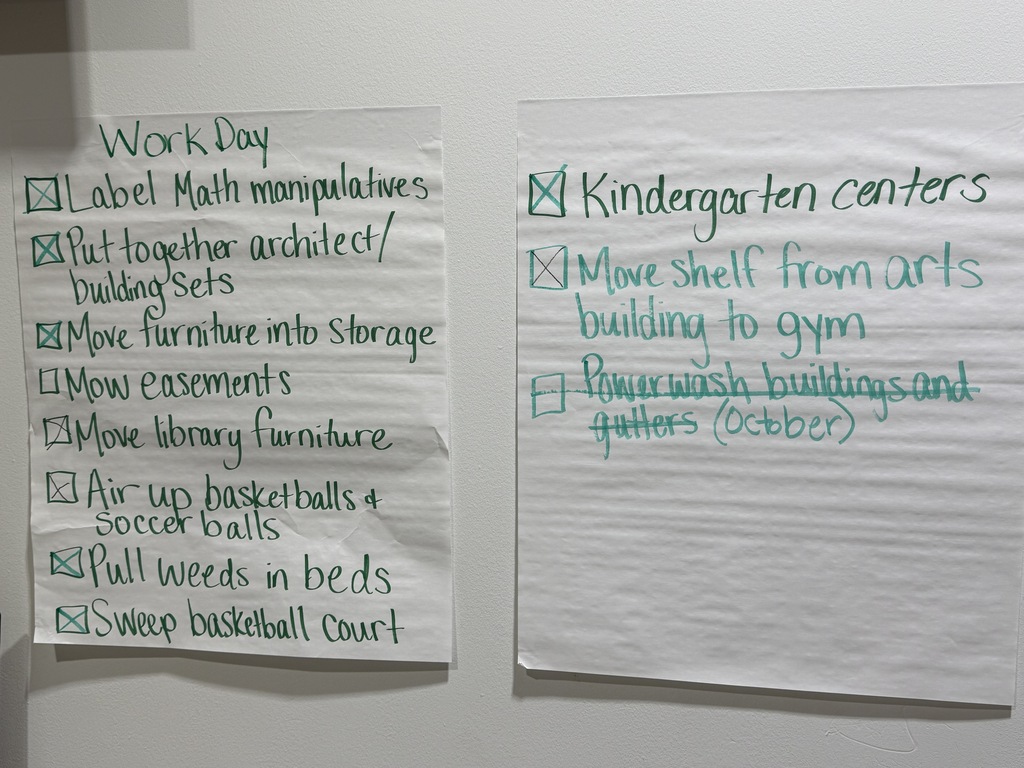 Work Day
☒ Label Math manipulatives
☒ Put together architect/
building sets
☒ Move furniture into storage
☐ Mow easements
☒ Move library furniture
☒ Air up basketballs &
soccer balls
☒ Pull weeds in beds
☒ Sweep basketball court
☒ Kindergarten centers
☒ Move shelf from arts
building to gym
☐ Powerwash buildings and
gutters (October)